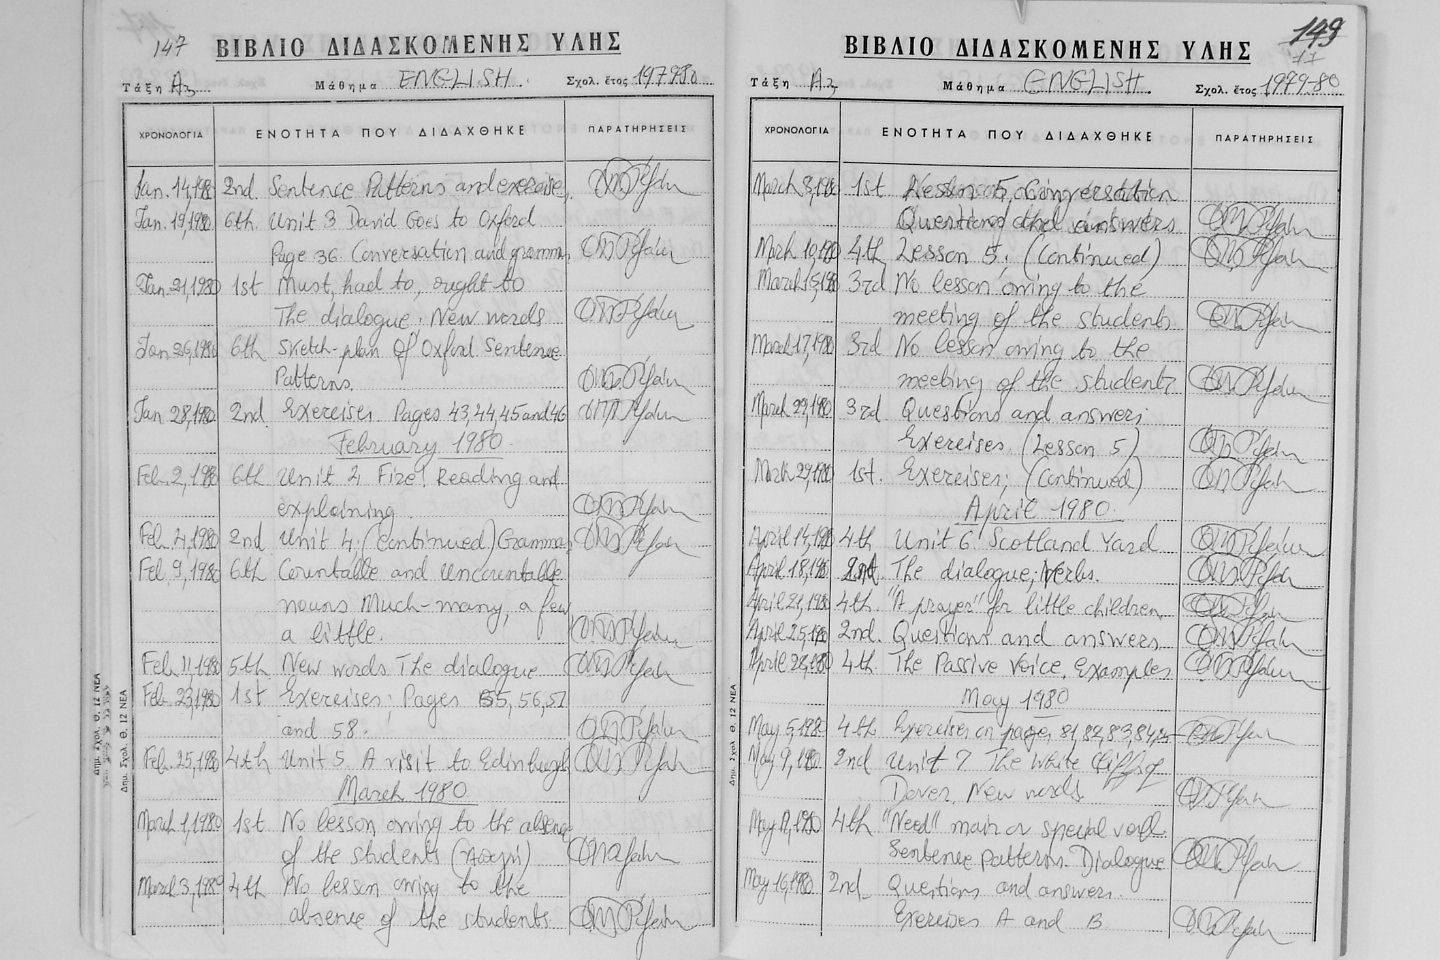 147 ΒΙΒΛΙΟ ΔΙΔΑΣΚΟΜΕΝΗΣ ΥΛΗΣ
Τάξη Α3 Μάθημα ENGLISH. Σχολ. έτος 1979-80
ΧΡΟΝΟΛΟΓΙΑ ΕΝΟΤΗΤΑ ΠΟΥ ΔΙΔΑΧΘΗΚΕ ΠΑΡΑΤΗΡΗΣΕΙΣ
Jan. 14, 1980 2nd. Sentence Patterns and exercise,
Jan. 19, 1980 6th. Unit 3 David Goes to Oxford
Page 36. Conversation and gramm.
Jan. 21, 1980 1st Must, had to, ought to
The dialogue; New words
Jan 26, 1980 6th Sketch-plan of Oxford Sentence
Patterns.
Jan 28, 1980 2nd. Exercises. Pages 43, 44, 45 and 46
February 1980.
Feb. 2, 1980 6th Unit 4 Fire! Reading and
explaining.
Feb. 4, 1980 2nd Unit 4. (continued) Grammar
Feb. 9, 1980 6th Countable and uncountable
nouns Much-many, a few
a little.
Feb. 11, 1980 5th New words The dialogue
Feb. 23, 1980 1st Exercises; Pages 55, 56, 57
and 58.
Feb. 25, 1980 4th Unit 5 A visit to Edinburgh
March 1980
March 1, 1980 1st No lesson owing to the absence
of the students (Αποχή)
March 3, 1980 4th No lesson owing to the
absence of the students
Δημ. Σχολ Θ. 12 ΝΕΑ
149
ΒΙΒΛΙΟ ΔΙΔΑΣΚΟΜΕΝΗΣ ΥΛΗΣ
Τάξη Α3 Μάθημα ENGLISH. Σχολ. έτος 1979-80
ΧΡΟΝΟΛΟΓΙΑ ΕΝΟΤΗΤΑ ΠΟΥ ΔΙΔΑΧΘΗΚΕ ΠΑΡΑΤΗΡΗΣΕΙΣ
March 8, 1980 1st Lesson 5, Conversation
Questions and answers
March 10, 1980 4th Lesson 5. (Continued)
March 15, 1980 3rd No lesson owing to the
meeting of the students
March 17, 1980 3rd No lesson owing to the
meeting of the students.
March 1980 3rd Questions and answers,
Exercises. (Lesson 5)
March 29, 1980 1st. Exercises; (Continued)
April 1980.
April 14, 1980 4th Unit 6 Scotland Yard
April 18, 1980 2nd The dialogue; Verbs.
April 21, 1980 4th. "A prayer" for little children.
April 25, 1980 2nd. Questions and answers
April 28, 1980 4th. The Passive Voice. Examples
May 1980
May 5, 1980 4th Exercises on pages 81, 82, 83, 84,
May 9, 1980 2nd Unit 7 The White Cliffs of
Dover. New words
May 1980 4th "Need" main or special verb.
Sentence patterns. Dialogue
May 16, 1980 2nd Questions and answers.
Exercises A and B.
Δημ. Σχολ Θ. 12 ΝΕΑ